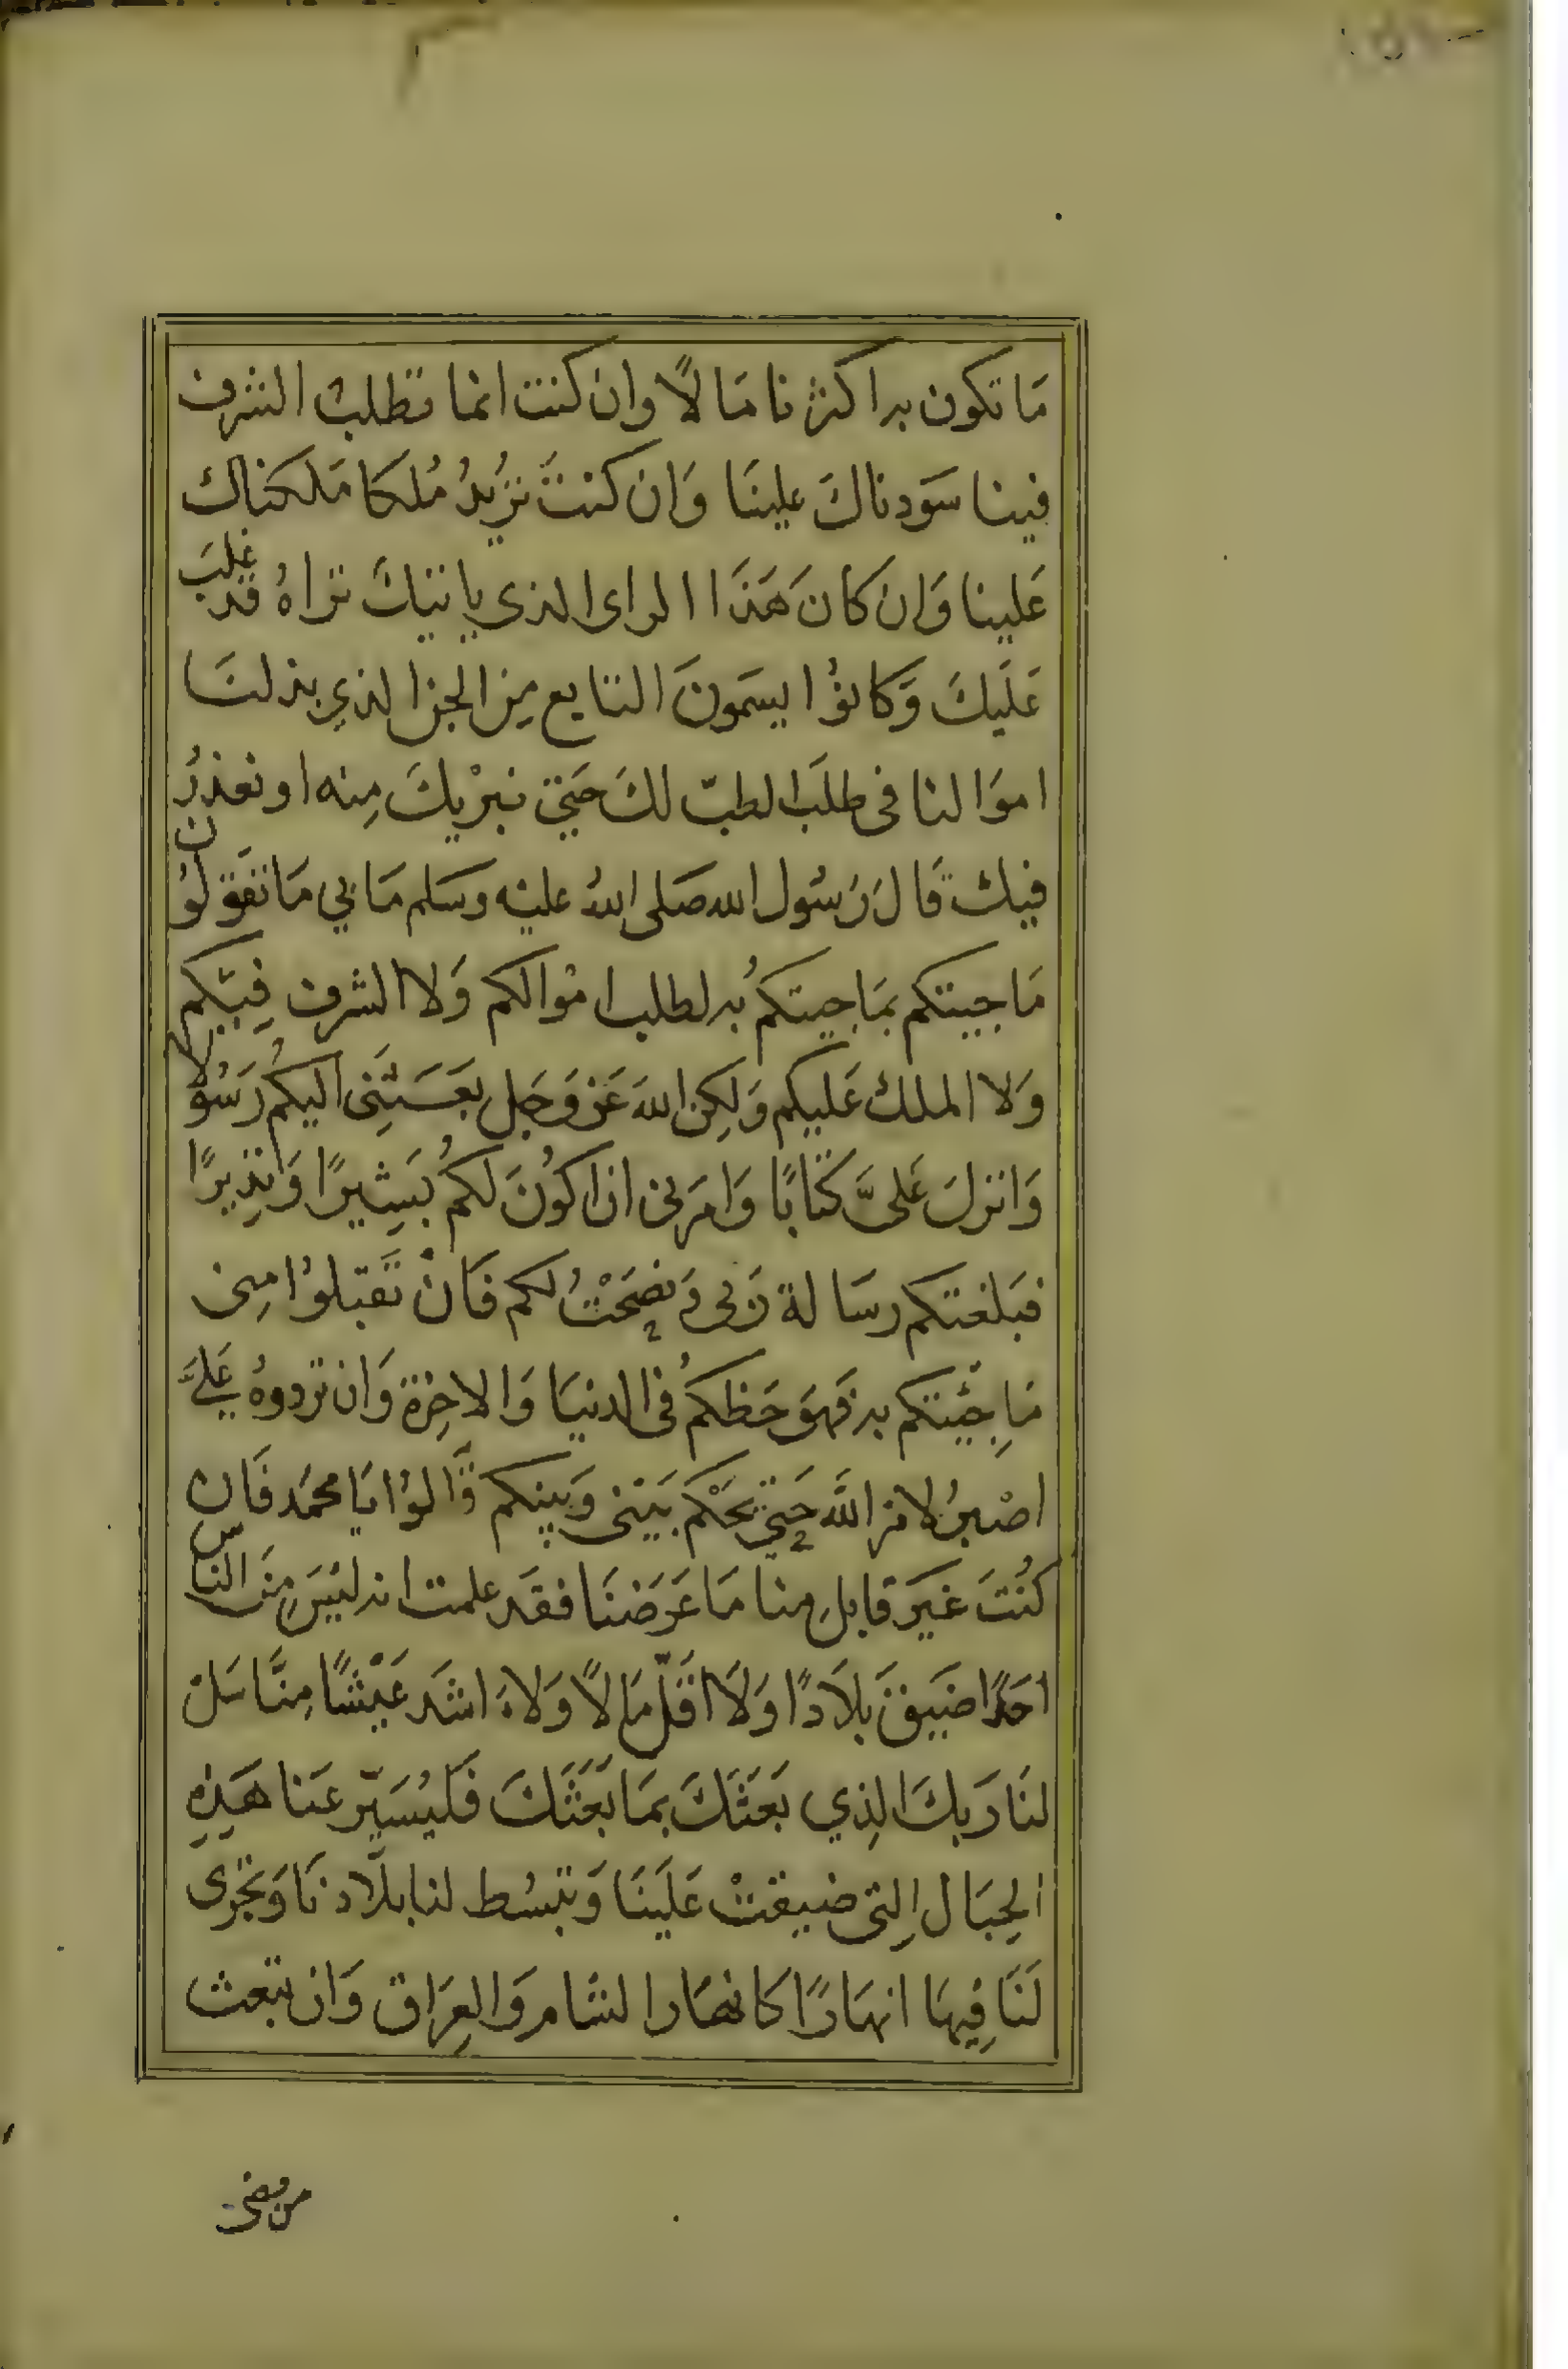 مَا تكون به اكثرنا مَالًا وان كنت انما تطلب الشرف
فينا سَودناكَ علينَا وَان كنتَ تُرِيدُ مُلكا مَلكناك
عَلينا وَان كانَ هَذَا الراى الذى ياتيكَ تراهُ قد غلبَ
عَلَيكَ وَكانوُا يسَمونَ التابع مِن الجن الذي بذلنَا
اموَالنا فى طلَب الطبّ لكَ حَتى نبرْيكَ مِنه او نعذرُ
فيك قَالَ رَسُول الله صَلى اللهُ عليْه وسَلم مَا بي مَا تقَولوُن
مَا جيتكم بمَا جيتكمُ به لطلب امْوالكم وَلا الشرف فِيكم
وَلا الملك عَليكم وَلكِن اللهَ عَز وَجَل بعَثَنِى اليكمُ رَسُولا
وَانزلَ عَلىَّ كتَابًا وَامَرنى ان اكوُنَ لكمُ بَشِيرًا وَنذِيرًا
فبَلغتكم رسَالة رَبى وَنصَحْتُ لكم فَانْ تَقبلوُا مِنى
مَا جِئتكم به فَهوَ حَظكمُ فى الدنيَا وَالاخِرَة وَان تردوهُ عَليَّ
اصْبرُ لامر اللَّه حَتى يحَكم بَيَنى وَبَينكم قَالوُا يَا محمَد فَان
كنُتَ غيَر قابلِ منا مَا عَرَضنَا فقَد علمت انه ليَسَ مِنَ الناس
احَدًا ضَيقَ بلاَدًا وَلَا اقَلّ مَالًا وَلاَ اشَد عَيْشًا مِنَّا سَل
لنَا رَبكَ الذِي بَعَثَكَ بمَا بَعَثَكَ فَليُسَيّر عَنا هَذِهِ
الجِبَال التِى ضيقتْ عَلَينَا وَيبسُط لنا بلَادنَا وَيجُرى
لَنَا فِيهَا انهَارًا كانهَار الشام وَالعِرَاق وَان يبعث
من مضى